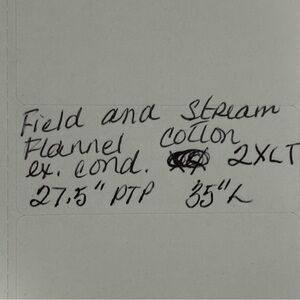 Field and Stream
Flannel Cotton
ex. cond. 2XLT
27.5" PTP 35"L